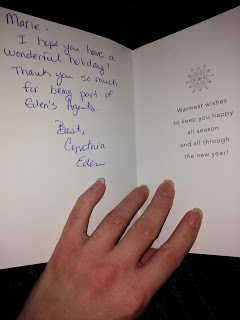 Marie -
I hope you have a
wonderful holiday!
Thank you so much
for being part of
Eden's Agents.
Best,
Cynthia
Eden
Warmest wishes
to keep you happy
all season
and all through
the new year!